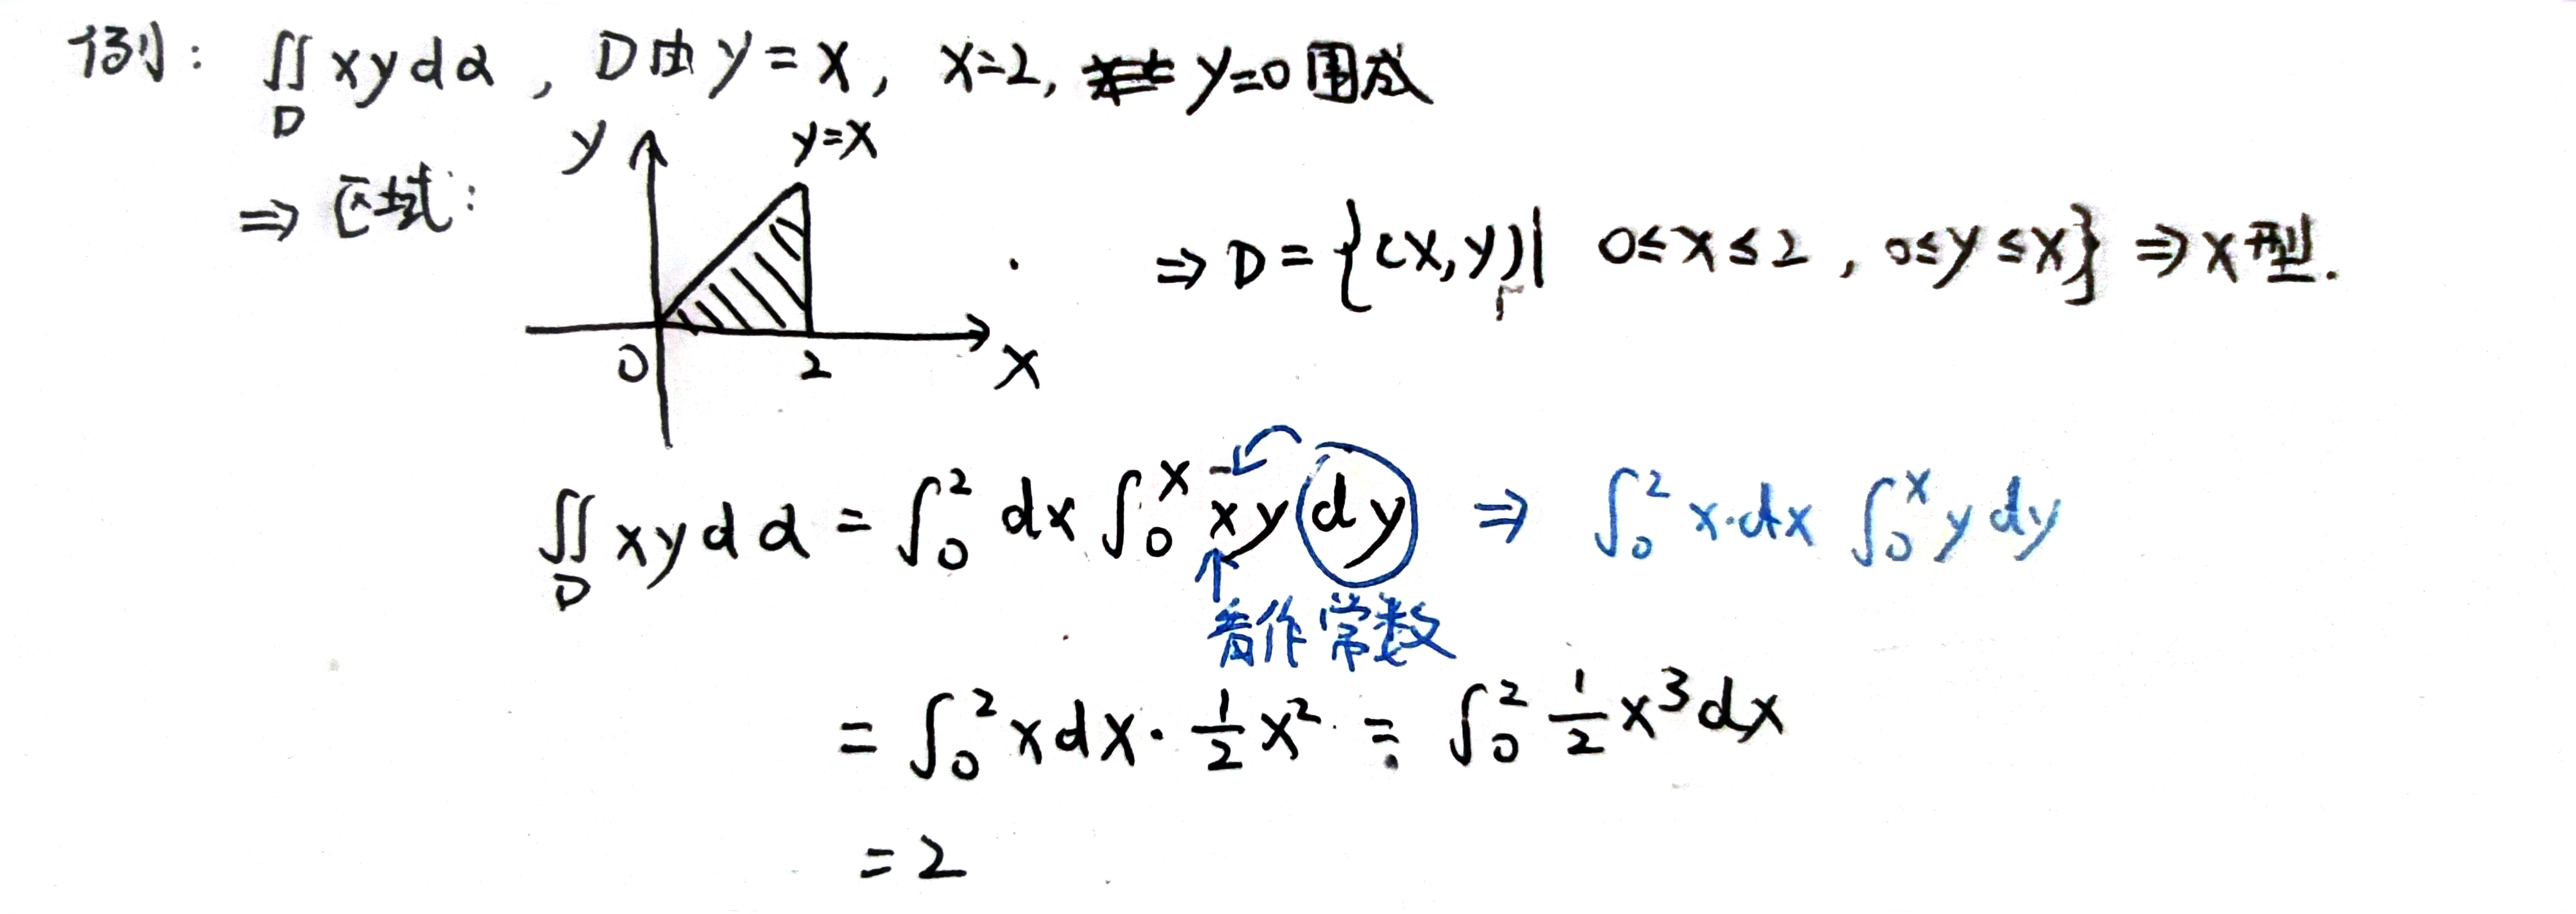 例: ∬ xydα , D由 y=x, x=2, y=0围成
D
⇒ 区域:
y
y=x
0
2
x
⇒ D={(x,y)| 0≤x≤2, 0≤y≤x} ⇒ x型.
∬ xydα = ∫₀² dx ∫₀ˣ xy dy ⇒ ∫₀² x·dx ∫₀ˣ y dy
D
↑
看作常数
= ∫₀² xdx · ½x² = ∫₀² ½x³dx
= 2